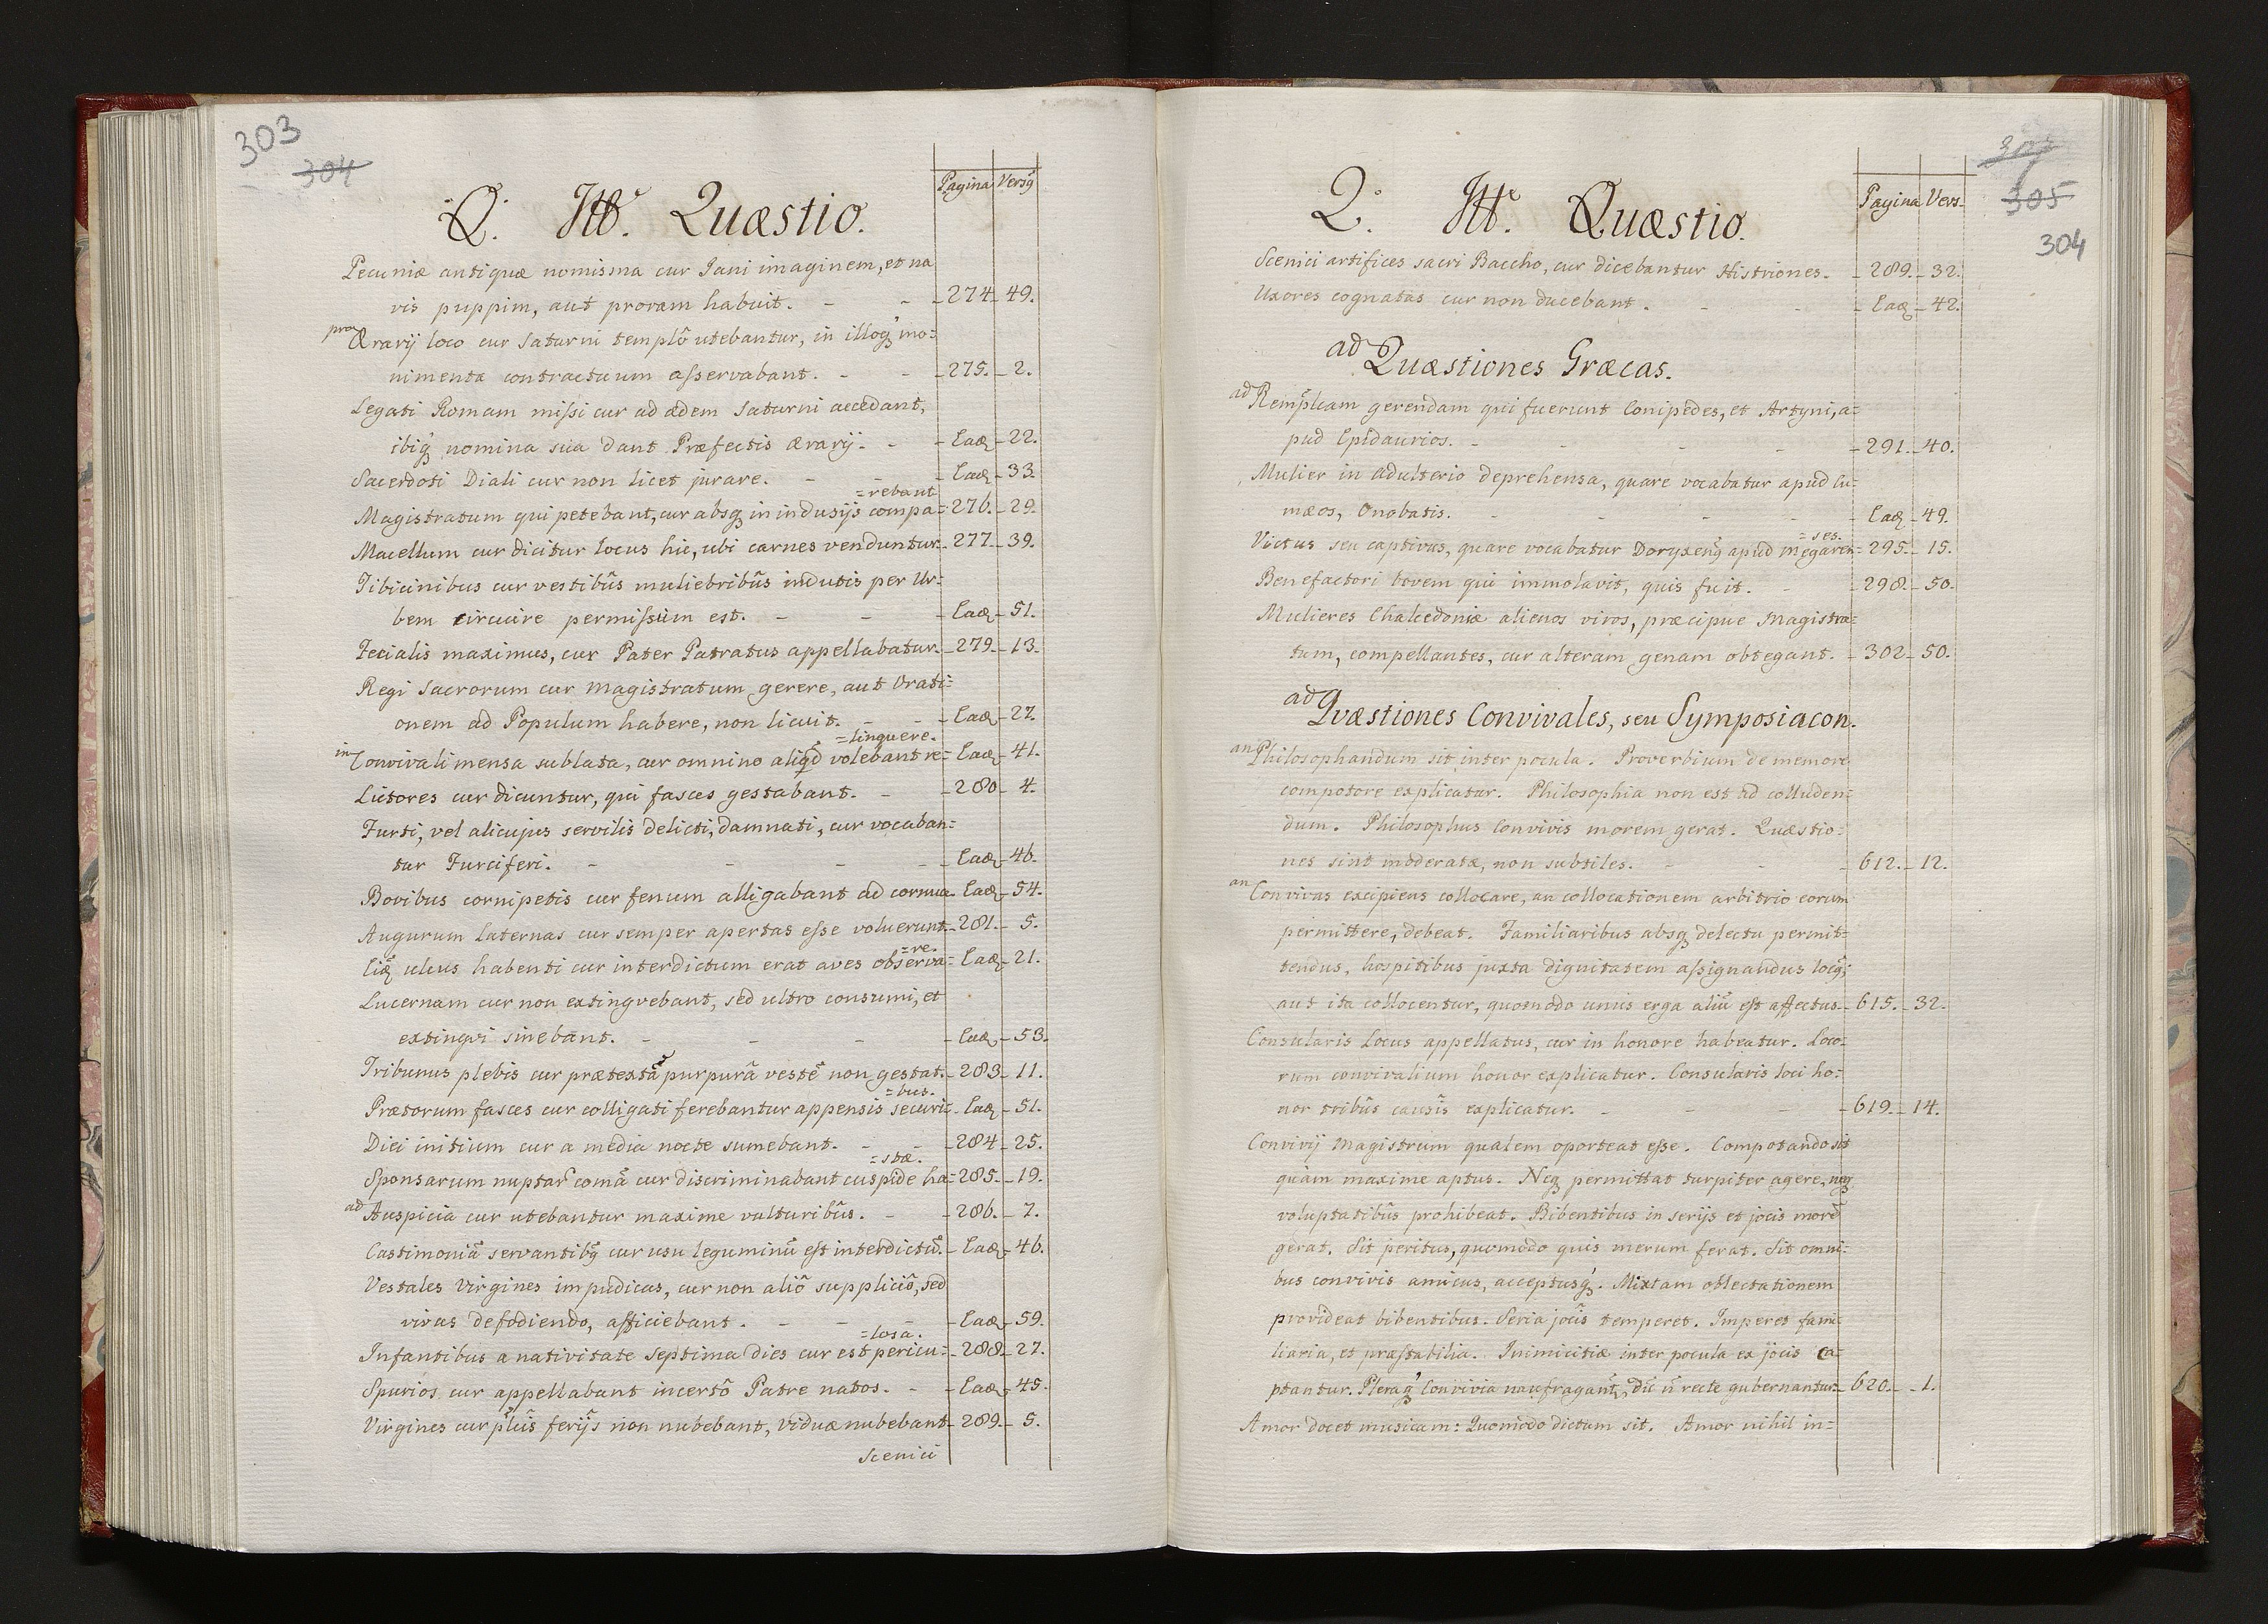 303
304
Pagina Versꝰ
Q. Itt. Quæstio.
Pecuniæ antiquæ nomisma cur Jani imaginem, et na
vis puppim, aut proram habuit. - - 274 - 49.
pro Ærarij loco cur Saturni templô utebantur, in illoq́ mo=
nimenta contractuum asservabant. - - 275. - 2.
Legati Romam missi cur ad ædem Saturni accedant,
ibiq́ nomina sua dant Præfectis Ærarij. - - Eaď - 22.
Sacerdoti Diali cur non licet jurare. - - Eaď - 33.
=rebant
Magistratum qui petebant, cur absq́ in indusijs compa= 276. - 29.
Macellum cur dicitur locus hic, ubi carnes venduntur - 277. - 39.
Tibicinibus cur vestibûs muliebribûs indutis per Ur=
bem circuire permissum est. - - Eaď - 51.
Fecialis maximus, cur Pater Patratus appellabatur. - 279. - 13.
Regi Sacrorum cur Magistratum gerere, aut Orati=
onem ad Populum habere, non licuit. - - Eaď - 27.
=linquere.
in Convivali mensa sublata, cur omnino aliqd volebant re= Eaď - 41.
Lictores cur dicuntur, qui fasces gestabant. - - 280 - 4.
Furti, vel alicujus servilis delicti, damnati, cur vocaban=
tur Furciferi. - - - - Eaď - 46.
Bovibus cornipetis cur fenum alligabant ad cornua - Eaď - 54.
Augurum laternas cur semper apertas esse voluerunt. - 281. - 5.
=re.
ulcus habenti cur interdictum erat aves observa= Eaď - 21.
Lucernam cur non extingvebant, sed ultro consumi, et
extingvi sinebant. - - - Eaď - 53.
Tribunus plebis cur prætextâ purpurâ vestê non gestat. - 283 - 11.
=bus.
Prætorum fasces cur colligati ferebantur appensis securi= - Eaď - 51.
Diei initium cur a media nocte sumebant. - - 284 - 25.
=stæ.
Sponsarum nuptar̃ comã cur discriminabant cuspide ha= 285. - 19.
ad Auspicia cur utebantur maxime vulturibûs. - - 286. - 7.
Castimoniã servantibꝰ cur usu leguminũ est interdictũ. - Eaď - 46.
Vestales Virgines impudicas, cur non aliô suppliciô, sed
vivas defodiendo, afficiebant. - - - Eaď - 59.
=losa.
Infantibus a nativitate septima dies cur est pericu= - 288. - 27.
Spurios cur appellabant incertô Patre natos. - - Eaď - 45.
Virgines cur pl̃ûis ferijs non nubebant, viduæ nubebant - 289. - 5.
Scenici
305
304
Pagina Vers.
Q. Itt. Quæstio.
Scenici artifices sacri Baccho, cur dicebantur Histriones. - - 289. - 32.
Uxores cognatas cur non ducebant. - - - Eaď - 42.
ad Quæstiones Græcas.
ad Rempl̃icam gerendam qui fuerunt Conipedes, et Artyni, a=
pud Epidaurios. - - - - 291. - 40.
Mulier in adulterio deprehensa, quare vocabatur apud Cu=
mæos, Onobatis. - - - - Eaď - 49.
=ses.
Victus seu captivus, quare vocabatur Doryxenꝰ apud Megaren= 295. - 15.
Benefactori bovem qui immolavit, quis fuit. - - 298. - 50.
Mulieres Chalcedoniæ alienos viros, præcipue Magistra=
tum, compellantes, cur alteram genam obtegant. - 302 - 50.
ad Qvæstiones Convivales, seu Symposiacon.
an Philosophandum sit inter pocula. Proverbium de memore
compotore explicatur. Philosophia non est ad colluden=
dum. Philosophus Convivis morem gerat. Quæstio=
nes sint moderatæ, non subtiles. - - - 612. - 12.
an Convivas excipiens collocare, an collocationem arbitrio eorum
permittere, debeat. Familiaribus absq́ delectu permit=
tendus, hospitibus juxta dignitatem assignandus locꝰ,
aut ita collocentur, quomodo unus erga aliũ est affectus. - 615. - 32.
Consularis Locus appellatus, cur in honore habeatur. Loco=
rum convivalium honor explicatur. Consularis loci ho=
nor tribûs causîs explicatur. - - - 619. - 14.
Convivij Magistrum qualem oporteat esse. Compotando sit
quàm maxime aptus. Neq́ permittat turpiter agere, neq́
voluptatibûs prohibeat. Bibentibus in serijs et jocis morẽ
gerat. Sit peritus, quomodo quis merum ferat. Sit omni=
bus convivis amicus, acceptusq́. Mixtam oblectationem
provideat bibentibus. Seria jocîs temperet. Imperet fami=
liaria, et præstabilia. Inimicitiæ inter pocula ex jocis ca=
ptantur. Pleraq́ Convivia naufragant, dũ ñ recte gubernantur. - 620. - 1.
Amor docet musicam: Quomodo dictum sit. Amor nihil in=